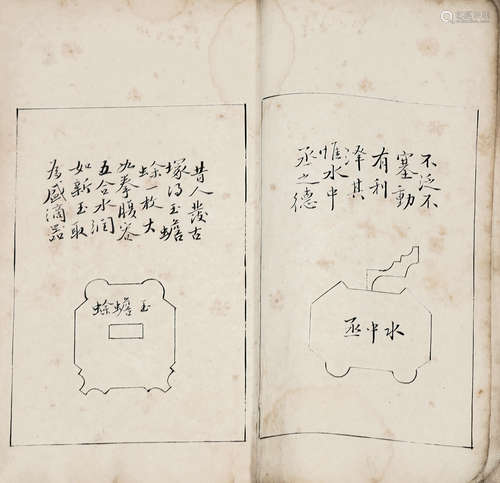 不泛不
塞動
有利
澤其
惟水中
丞之德
水中丞
昔人發古
塚得玉蟾
蜍一枚大
如拳腹容
五合水潤
如新玉取
為盛滴器
玉蟾蜍